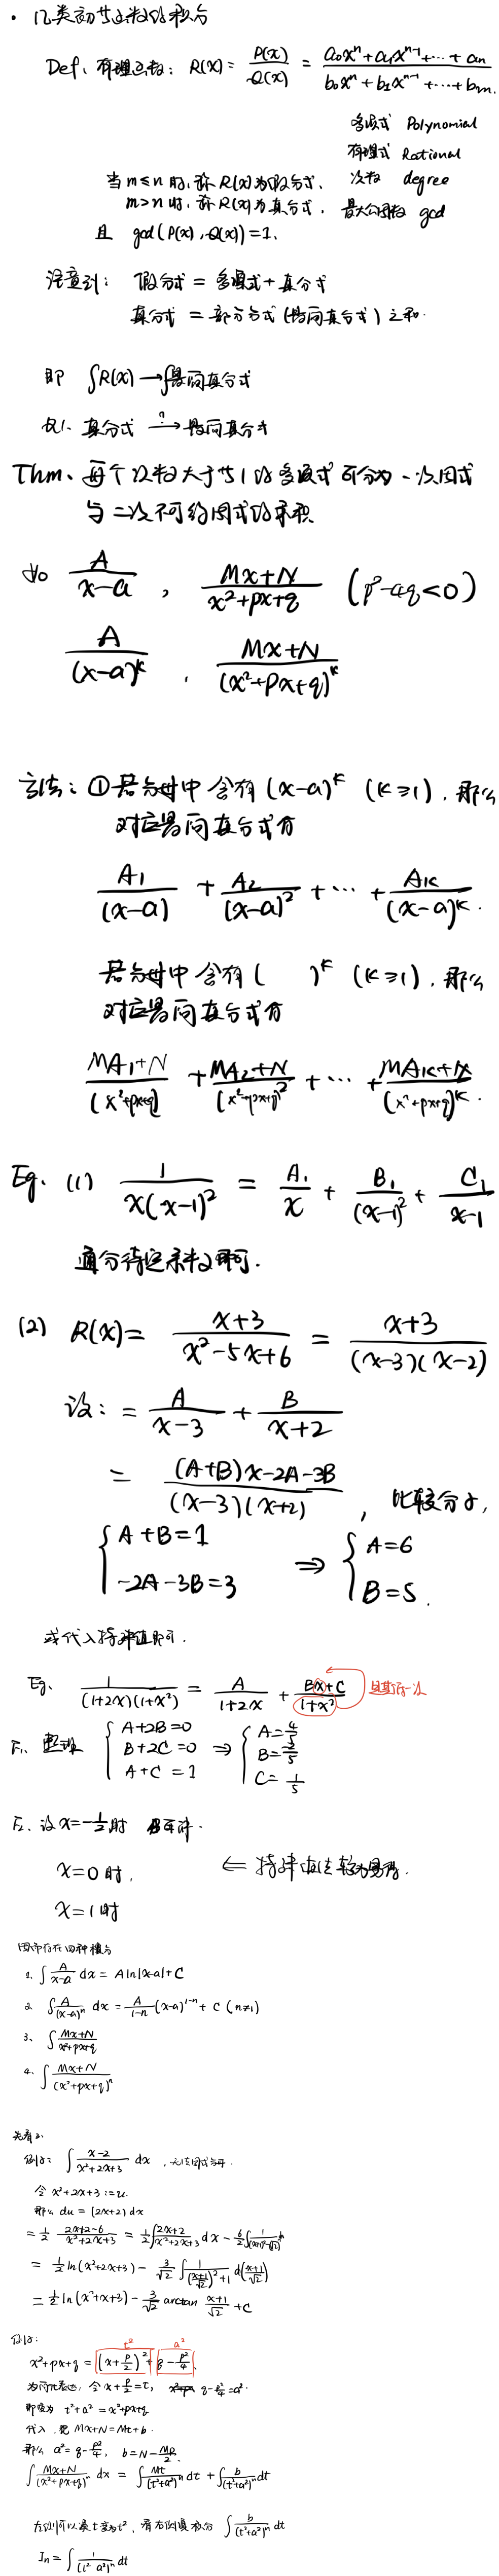 · 几类初等函数的积分
Def. 有理函数: R(x) = P(x)/Q(x) = (a₀xⁿ+a₁xⁿ⁻¹+…+aₙ)/(b₀xⁿ+b₁xⁿ⁻¹+…+bₘ.
多项式 Polynomial
有理式 Rational
当 m≤n 时, 称 R(x) 为假分式. 次数 degree
m>n 时, 称 R(x) 为真分式. 最大公因数 gcd
且 gcd(P(x), Q(x))=1.
注意到: 假分式 = 多项式+真分式
真分式 = 部分分式 (最简真分式) 之和.
即 ∫R(x) → ∫最简真分式
真分式 →? 最简真分式
Thm. 每个次数大于等于1的多项式可分为一次因式
与二次不可约因式的乘积
如 A/(x-a) , (Mx+N)/(x²+px+q) (p²-4q<0)
A/(x-a)ᵏ , (Mx+N)/(x²+px+q)ᵏ
方法: ①若分母中含有 (x-a)ᵏ (k≥1), 那么
对应最简真分式有
A₁/(x-a) + A₂/(x-a)² + … + Aₖ/(x-a)ᵏ.
若分母中含有 ( )ᵏ (k≥1), 那么
对应最简真分式有
(MA₁+N)/(x²+px+q) + (MA₂+N)/(x²+px+q)² + … + (MAₖ+N)/(x²+px+q)ᵏ.
Eg. (1) 1/(x(x-1)²) = A₁/x + B₁/(x-1)² + C₁/(x-1)
通分待定系数即可.
(2) R(x) = (x+3)/(x²-5x+6) = (x+3)/((x-3)(x-2))
设: = A/(x-3) + B/(x+2)
= ((A+B)x-2A-3B)/((x-3)(x+2)) , 比较分子,
{ A+B=1 ⇒ { A=6
-2A-3B=3 B=5.
或代入特殊值即可.
Eg. 1/((1+2x)(1+x²)) = A/(1+2x) + (Bx+C)/(1+x²)
整理 { A+2B=0 ⇒ { A=4/5
B+2C=0 B=-2/5
A+C=1 C=1/5
设 x=-1/2 时
x=0 时, ⇐ 特殊值法较为易得.
x=1 时
因而存在四种积分
1. ∫A/(x-a) dx = A ln|x-a|+C
2. ∫A/(x-a)ⁿ dx = A/(1-n) (x-a)¹⁻ⁿ + C (n≠1)
3. ∫(Mx+N)/(x²+px+q)
4. ∫(Mx+N)/(x²+px+q)ⁿ
先看3.
例: ∫(x-2)/(x²+2x+3) dx , 无法因式分解.
令 x²+2x+3 := u.
那么 du = (2x+2) dx
= 1/2 (2x+2-6)/(x²+2x+3) = 1/2∫(2x+2)/(x²+2x+3) dx - 6/2∫1/((x+1)²+(√2)²)
= 1/2 ln(x²+2x+3) - 3/√2 ∫1/(((x+1)/√2)²+1) d((x+1)/√2)
= 1/2 ln(x²+x+3) - 3/√2 arctan (x+1)/√2 + C
例:
t² a²
x²+px+q = (x+p/2)² + q-p²/4.
为简化表达, 令 x+p/2=t, q-p²/4=a².
即变为 t²+a² = x²+px+q
代入, 把 Mx+N=Mt+b.
那么 a²=q-p²/4, b=N-Mp/2.
∫(Mx+N)/(x²+px+q)ⁿ dx = ∫Mt/(t²+a²)ⁿ dt + ∫b/(t²+a²)ⁿ dt
左侧可以凑 t 变为 t², 看右侧 ∫b/(t²+a²)ⁿ dt
Iₙ = ∫1/(t² a²)ⁿ dt